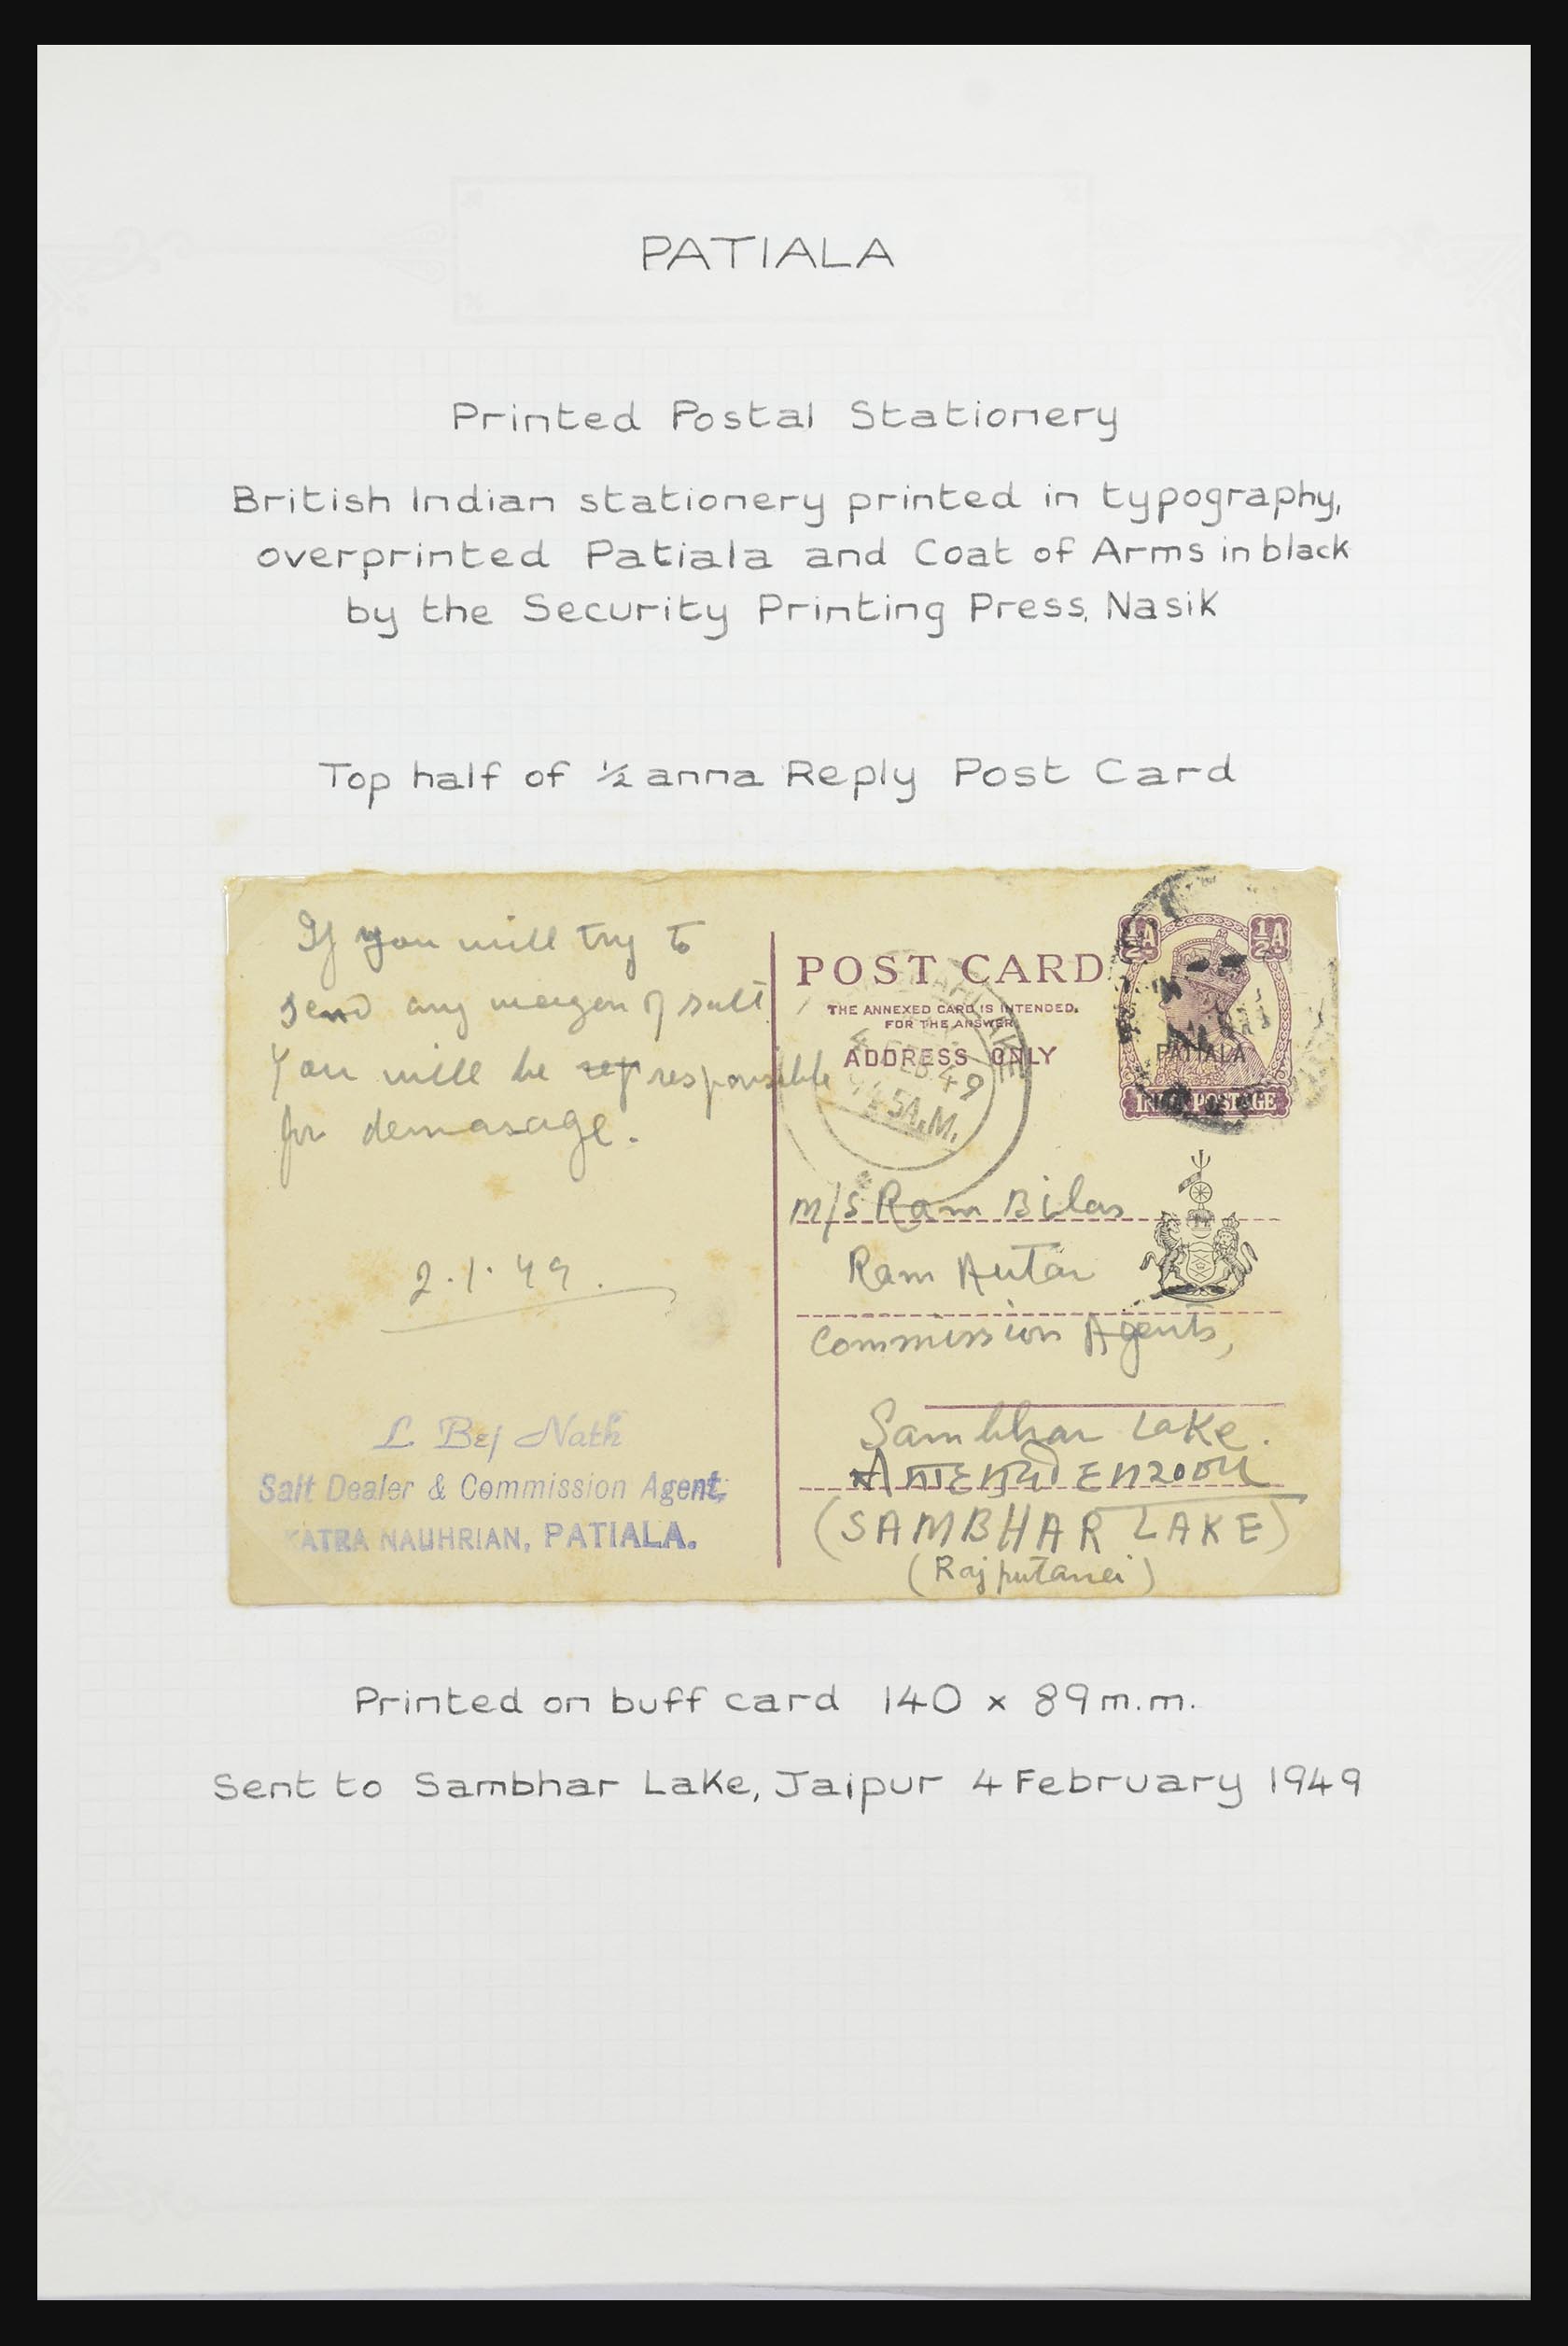 PATIALA
Printed Postal Stationery
British Indian stationery printed in typography,
overprinted Patiala and Coat of Arms in black
by the Security Printing Press, Nasik
Top half of ½ anna Reply Post Card
If you will try to
send any wagon of salt
You will be responsible
for demasage.
2.1.49.
L Bej Nath
Salt Dealer & Commission Agent,
KATRA NAUHRIAN, PATIALA.
POST CARD
THE ANNEXED CARD IS INTENDED.
FOR THE ANSWER.
ADDRESS ONLY
4 FEB. 49
SA.M.
½A ½A
PATIALA
INDIA POSTAGE
M/S Ram Bilas
Ram Autar
Commission Agents,
Sambhar Lake.
(SAMBHAR LAKE)
(Rajputana)
Printed on buff card 140 x 89 m.m.
Sent to Sambhar Lake, Jaipur 4 February 1949